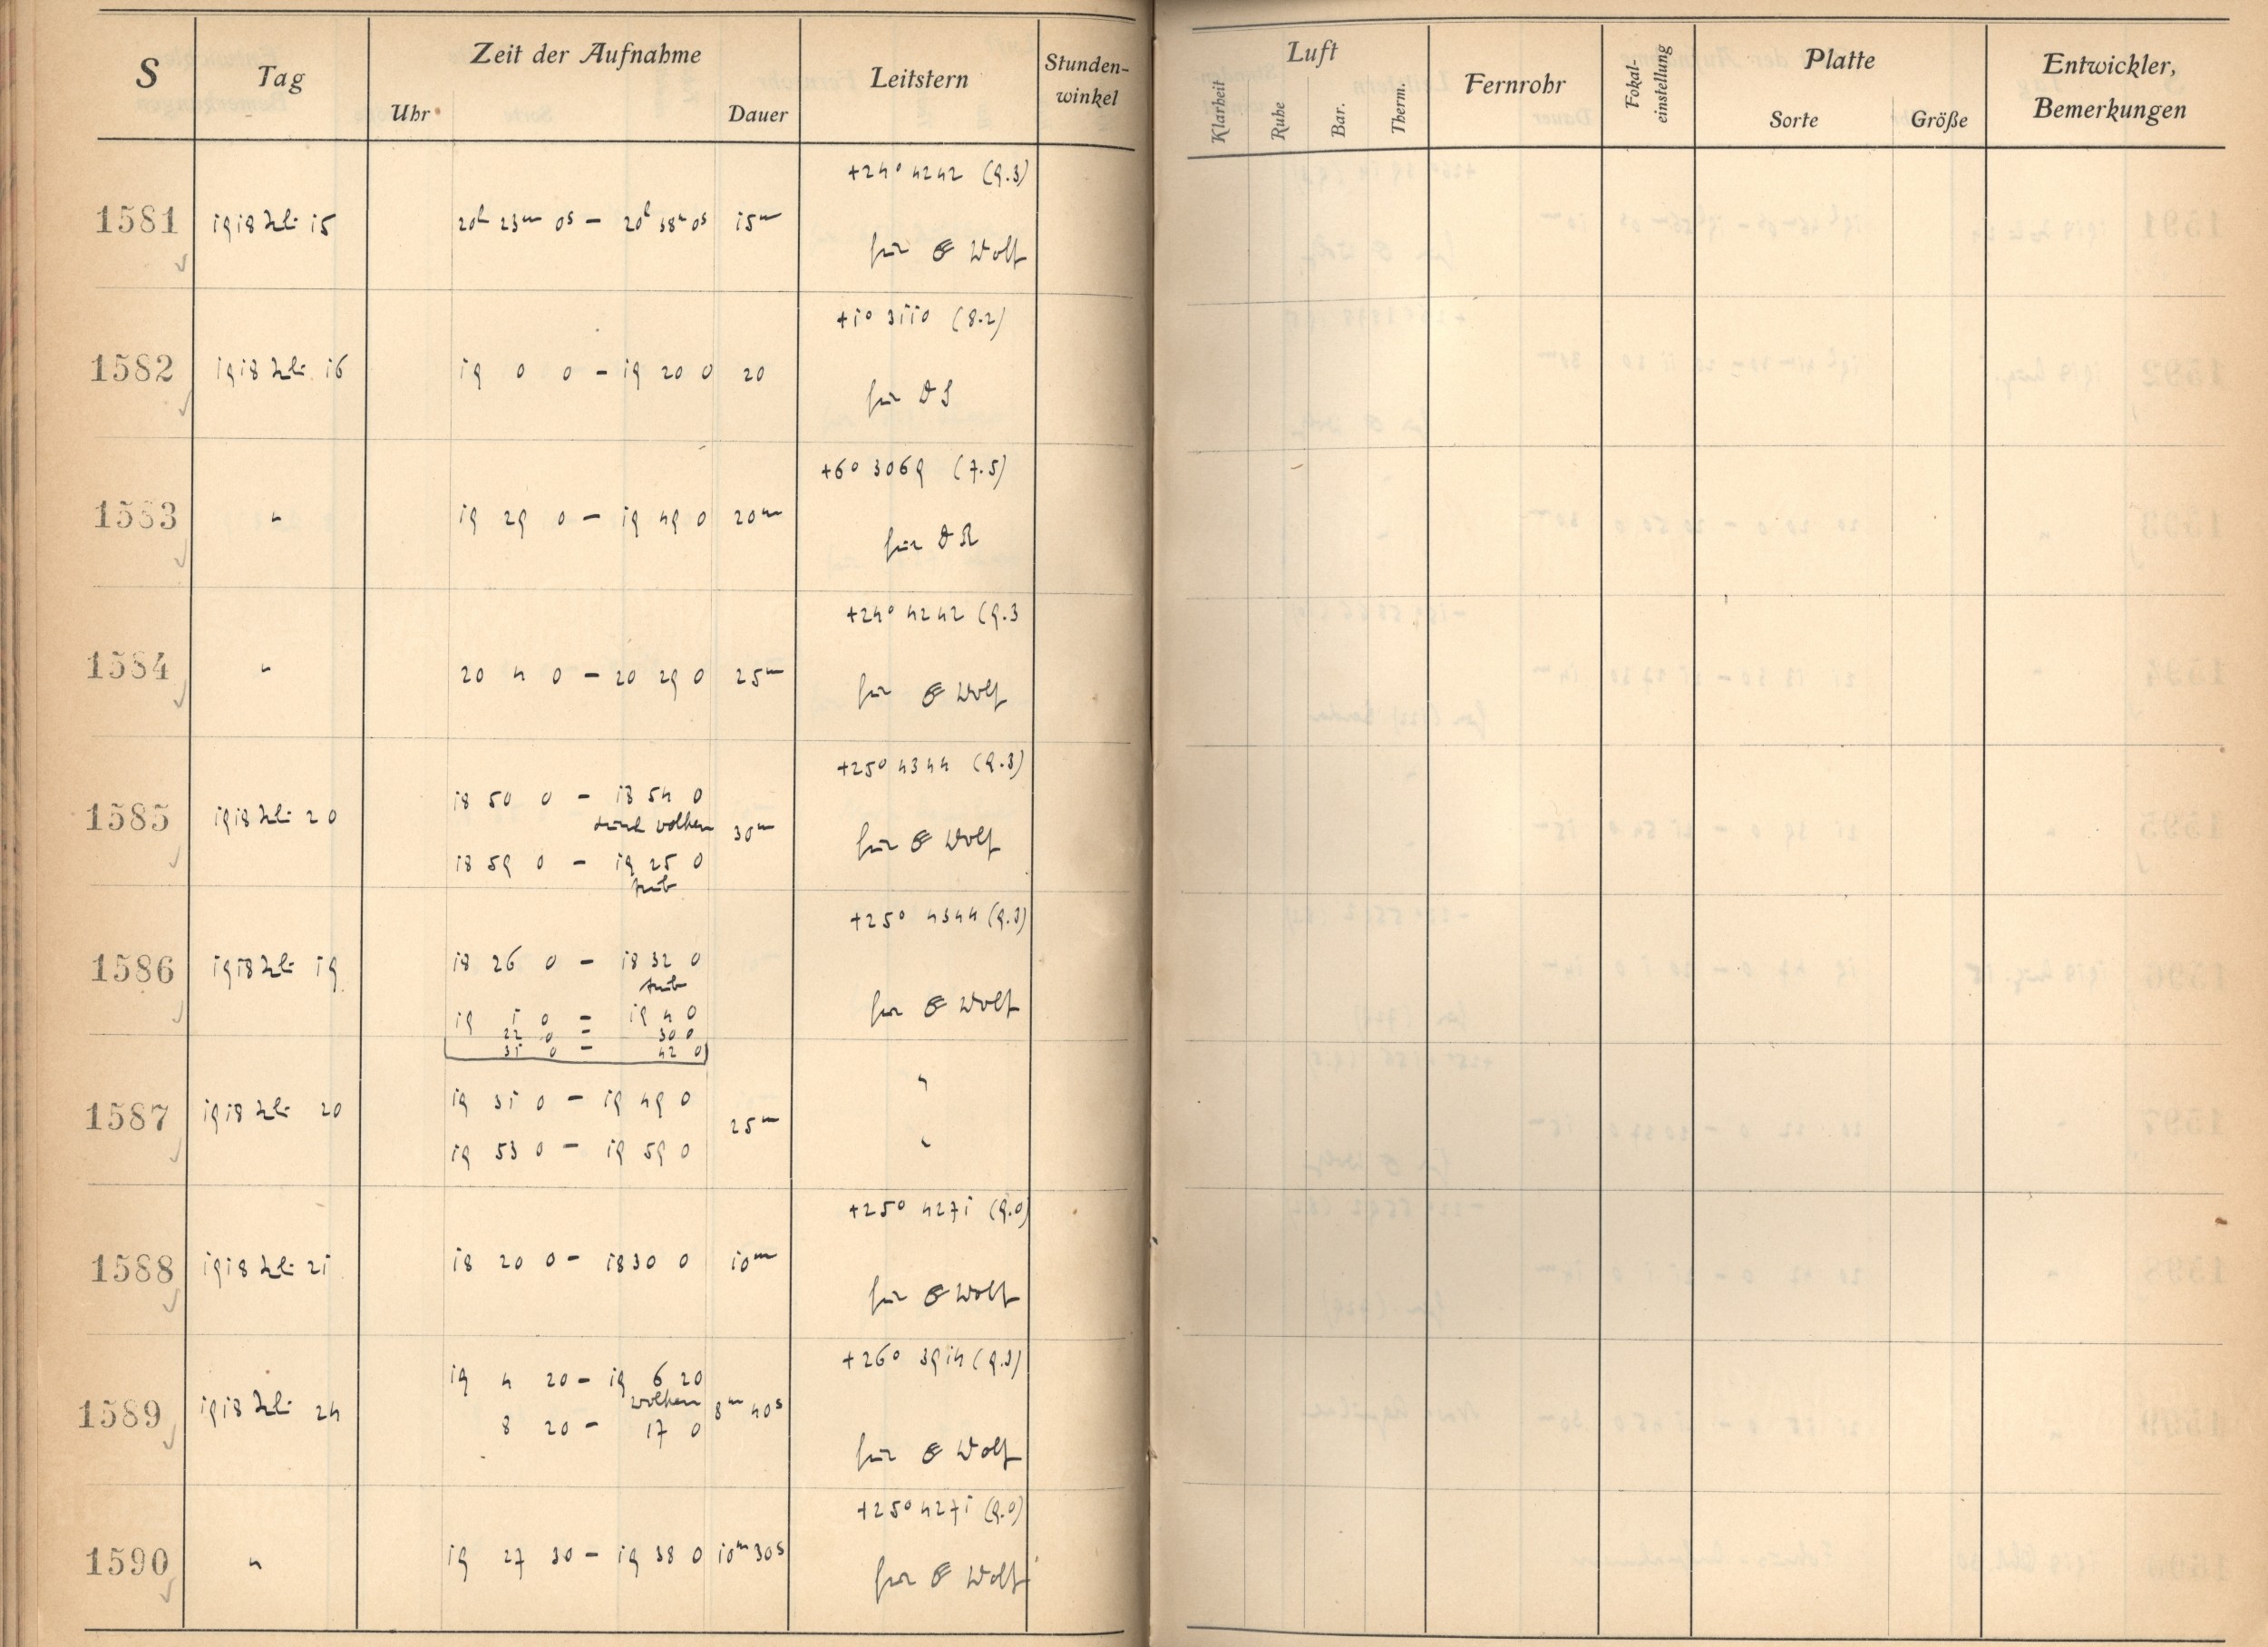 S Tag Zeit der Aufnahme Leitstern Stunden-winkel Luft Fernrohr Fokal-einstellung Platte Entwickler, Bemerkungen
Uhr Dauer Klarheit Ruhe Bar. Therm. Sorte Größe
+24° 4242 (9.3)
1581 1918 Juli 15 20h 23m 0s – 20h 38m 0s 15m
für Wolf
+1° 3110 (8.2)
1582 1918 Juli 16 19 0 0 – 19 20 0 20
für
+6° 3069 (7.5)
1583 " 19 29 0 – 19 49 0 20m
für
+24° 4242 (9.3
1584 " 20 4 0 – 20 29 0 25m
für Wolf
+25° 4344 (9.3)
18 50 0 – 18 54 0
1585 1918 Juli 20 durch Wolken 30m
für Wolf
18 59 0 – 19 25 0
trüb
+25° 4344 (9.3)
1586 1918 Juli 19 18 26 0 – 18 32 0
trüb
für Wolf
19 1 0 – 19 4 0
22 0 – 30 0
31 0 – 42 0
"
1587 1918 Juli 20 19 31 0 – 19 49 0 25m
19 53 0 – 19 59 0 "
+25° 4271 (9.0)
1588 1918 Juli 21 18 20 0 – 18 30 0 10m
für Wolf
+26° 3914 (9.3)
19 4 20 – 19 6 20
1589 1918 Juli 24 Wolken 8m 40s
8 20 – 17 0
für Wolf
+25° 4271 (9.0)
1590 " 19 27 30 – 19 38 0 10m 30s
für Wolf